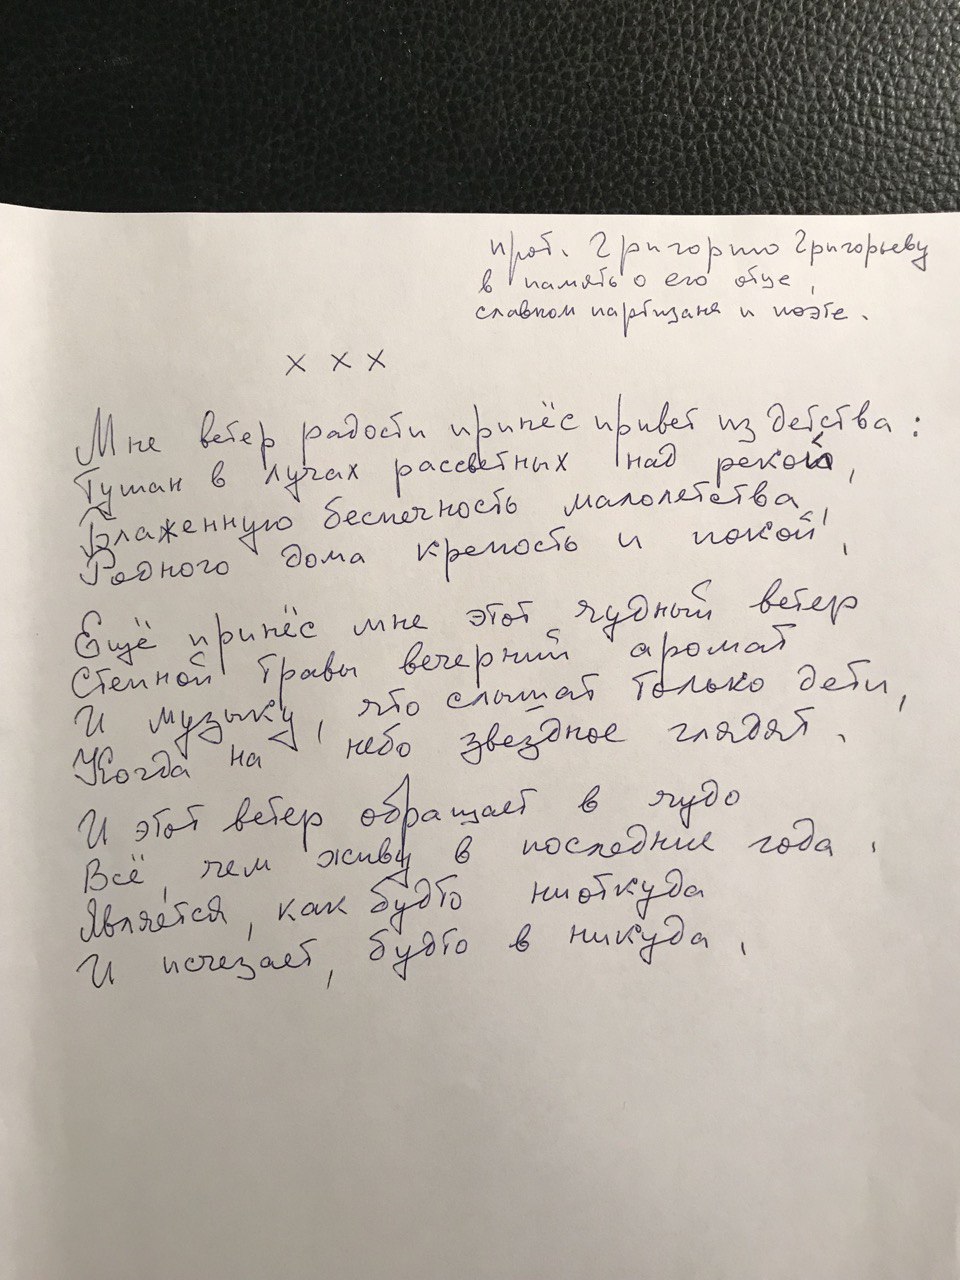 прот. Григорию Григорьеву
в память о его отце,
славном партизане и поэте.
х х х
Мне ветер радости принёс привет из детства:
Туман в лучах рассветных над рекой,
Блаженную беспечность малолетства,
Родного дома крепость и покой.
Ещё принёс мне этот чудный ветер
Степной травы вечерний аромат
И музыку, что слышат только дети,
Когда на небо звездное глядят.
И этот ветер обращает в чудо
Всё, чем живу в последние года.
Является, как будто ниоткуда
И исчезает, будто в никуда.